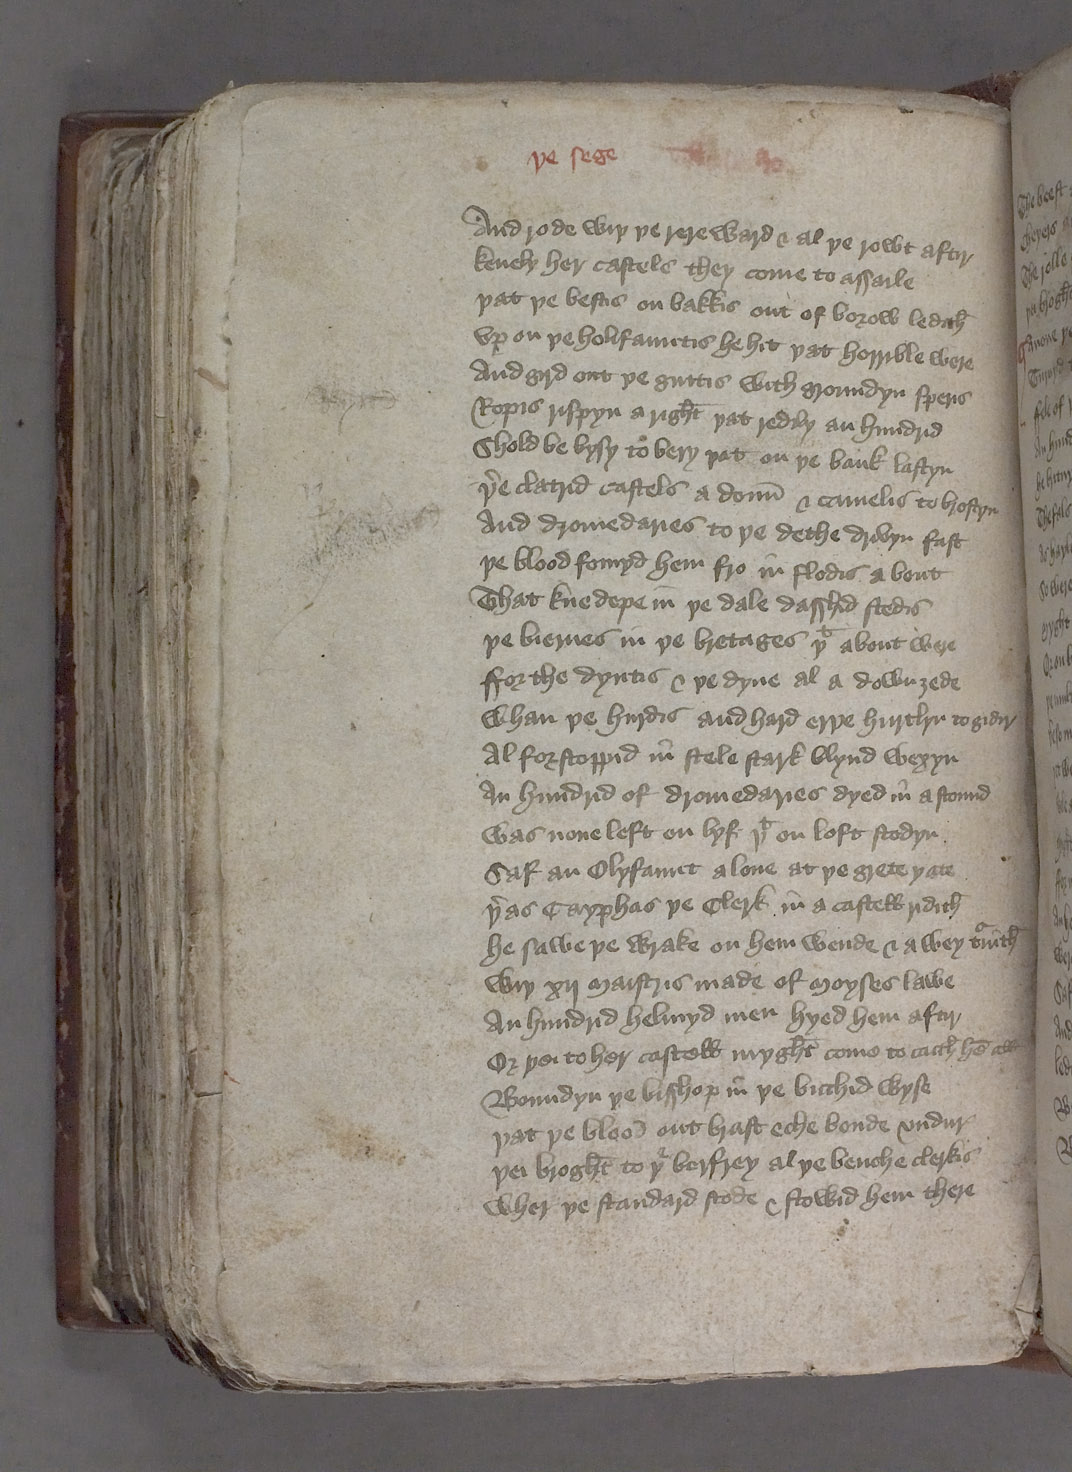 þe sege
And rode wiþ þe rereward & al þe rowt aftir
kenely her castels they come to assaile
þat þe bestis on bakkis out of borow ledith
Vp on þe holifauntis he hit þat horrible were
And gird out þe guttis with groundyn speris
Ropis rispyn a right þat redily an hundrid
Shold be bysy to bery þat on þe bank lastyn
þe clatrid castels a doun & camelis to brostyn
And dromedaries to þe dethe drivyn fast
þe blood fomyd hem fro in flodis a bout
That kne depe in þe dale dasshid stedis
þe biernes in þe bretages þt about were
ffor the dyntis & þe dyne al a down ȝede
Whan þe hurdis and hard erþe hurtlyn to gidir
Al forstoppid in stele stark blynd wexyn
An hundrid of dromedaries dyed in a stound
Was none left on lyf þt on loft stodyn
Saf an Olyfaunt a lone at þe grete yate
þas Cayphas þe Clerk in a castell ridith
he sawe þe wrake on hem wende & a wey
wiþ xij maistris made of moyses lawe
An hundrid helmyd men hyed hem aftir
Or þei to her castell myght come to cacch hem all
Boundyn þe bisshop in þe bicchid wyse
þat þe blood out brast eche bonde vndur
þei broght to þe berfrey al þe benche clerkis
Wher þe standard stode & stowid hem there